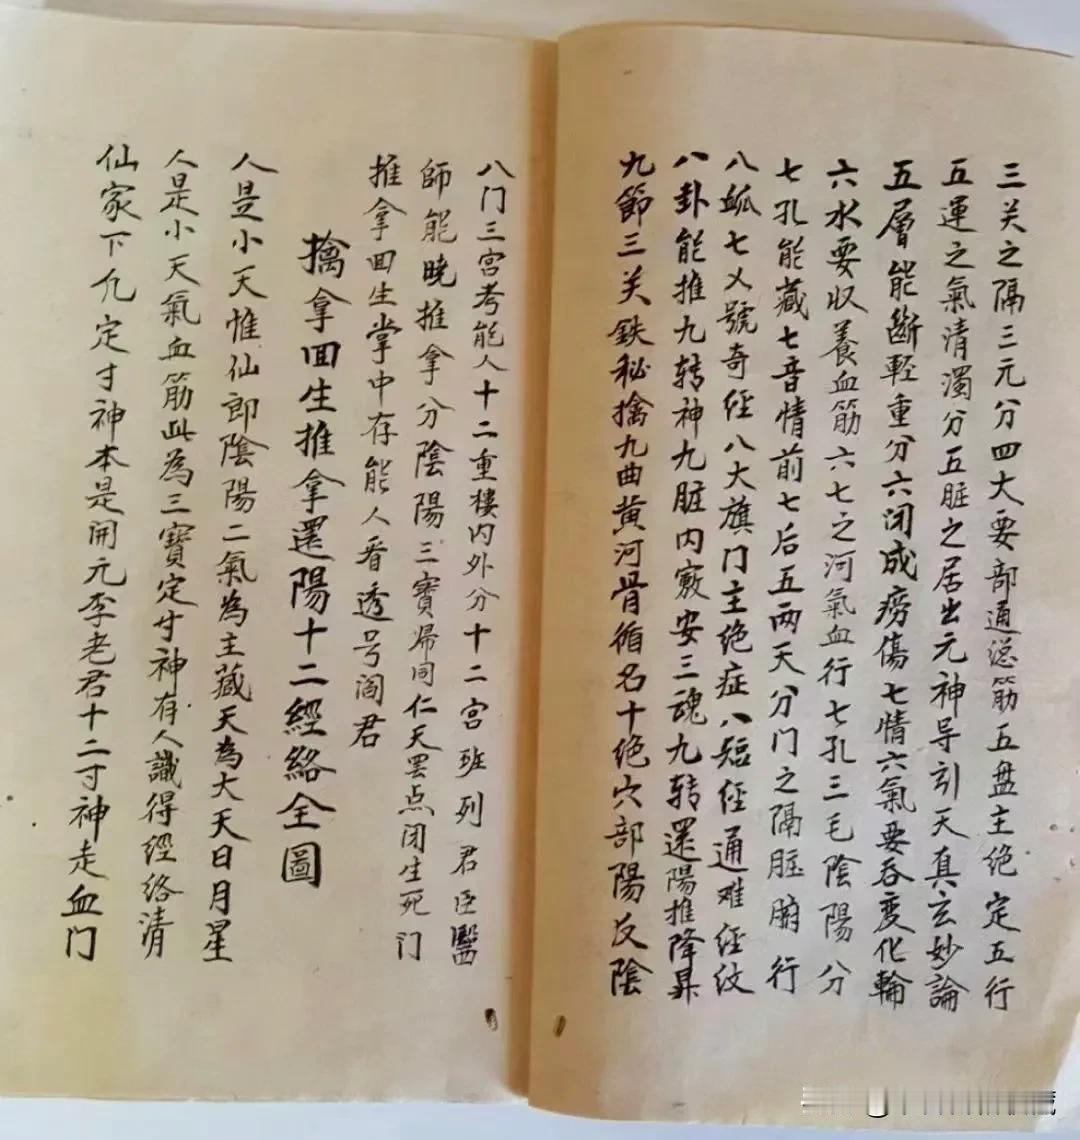 三关之隔三元分四大要部通总筋五盘主绝定五行
五運之氣清濁分五脏之居出元神导引天真玄妙論
五層能斷輕重分六闭成痨傷七情六氣要吞变化輪
六水要収養血筋六七之河氣血行七孔三毛陰陽分
七孔能藏七音情前七后五两天分门之隔脏腑行
八脉七乂號奇经八大旗门主绝症八短经通难经纹
八卦能推九转神九脏内竅安三魂九转還陽推降昇
九節三关鉄秘擒九曲黄河骨循名十绝穴部陽反陰
八门三宫考能人十二重樓内外分十二宫班列君臣醫
師能曉推拿分陰陽三寶㱕同仁天罡点闭生死门
推拿回生掌中存能人看透号阎君
擒拿回生推拿還陽十二經絡全圖
人是小天惟仙郎陰陽二氣為主藏天為大天日月星
人是小天氣血筋此為三寶定寸神有人識得經络清
仙家下凢定寸神本是開元李老君十二寸神走血门